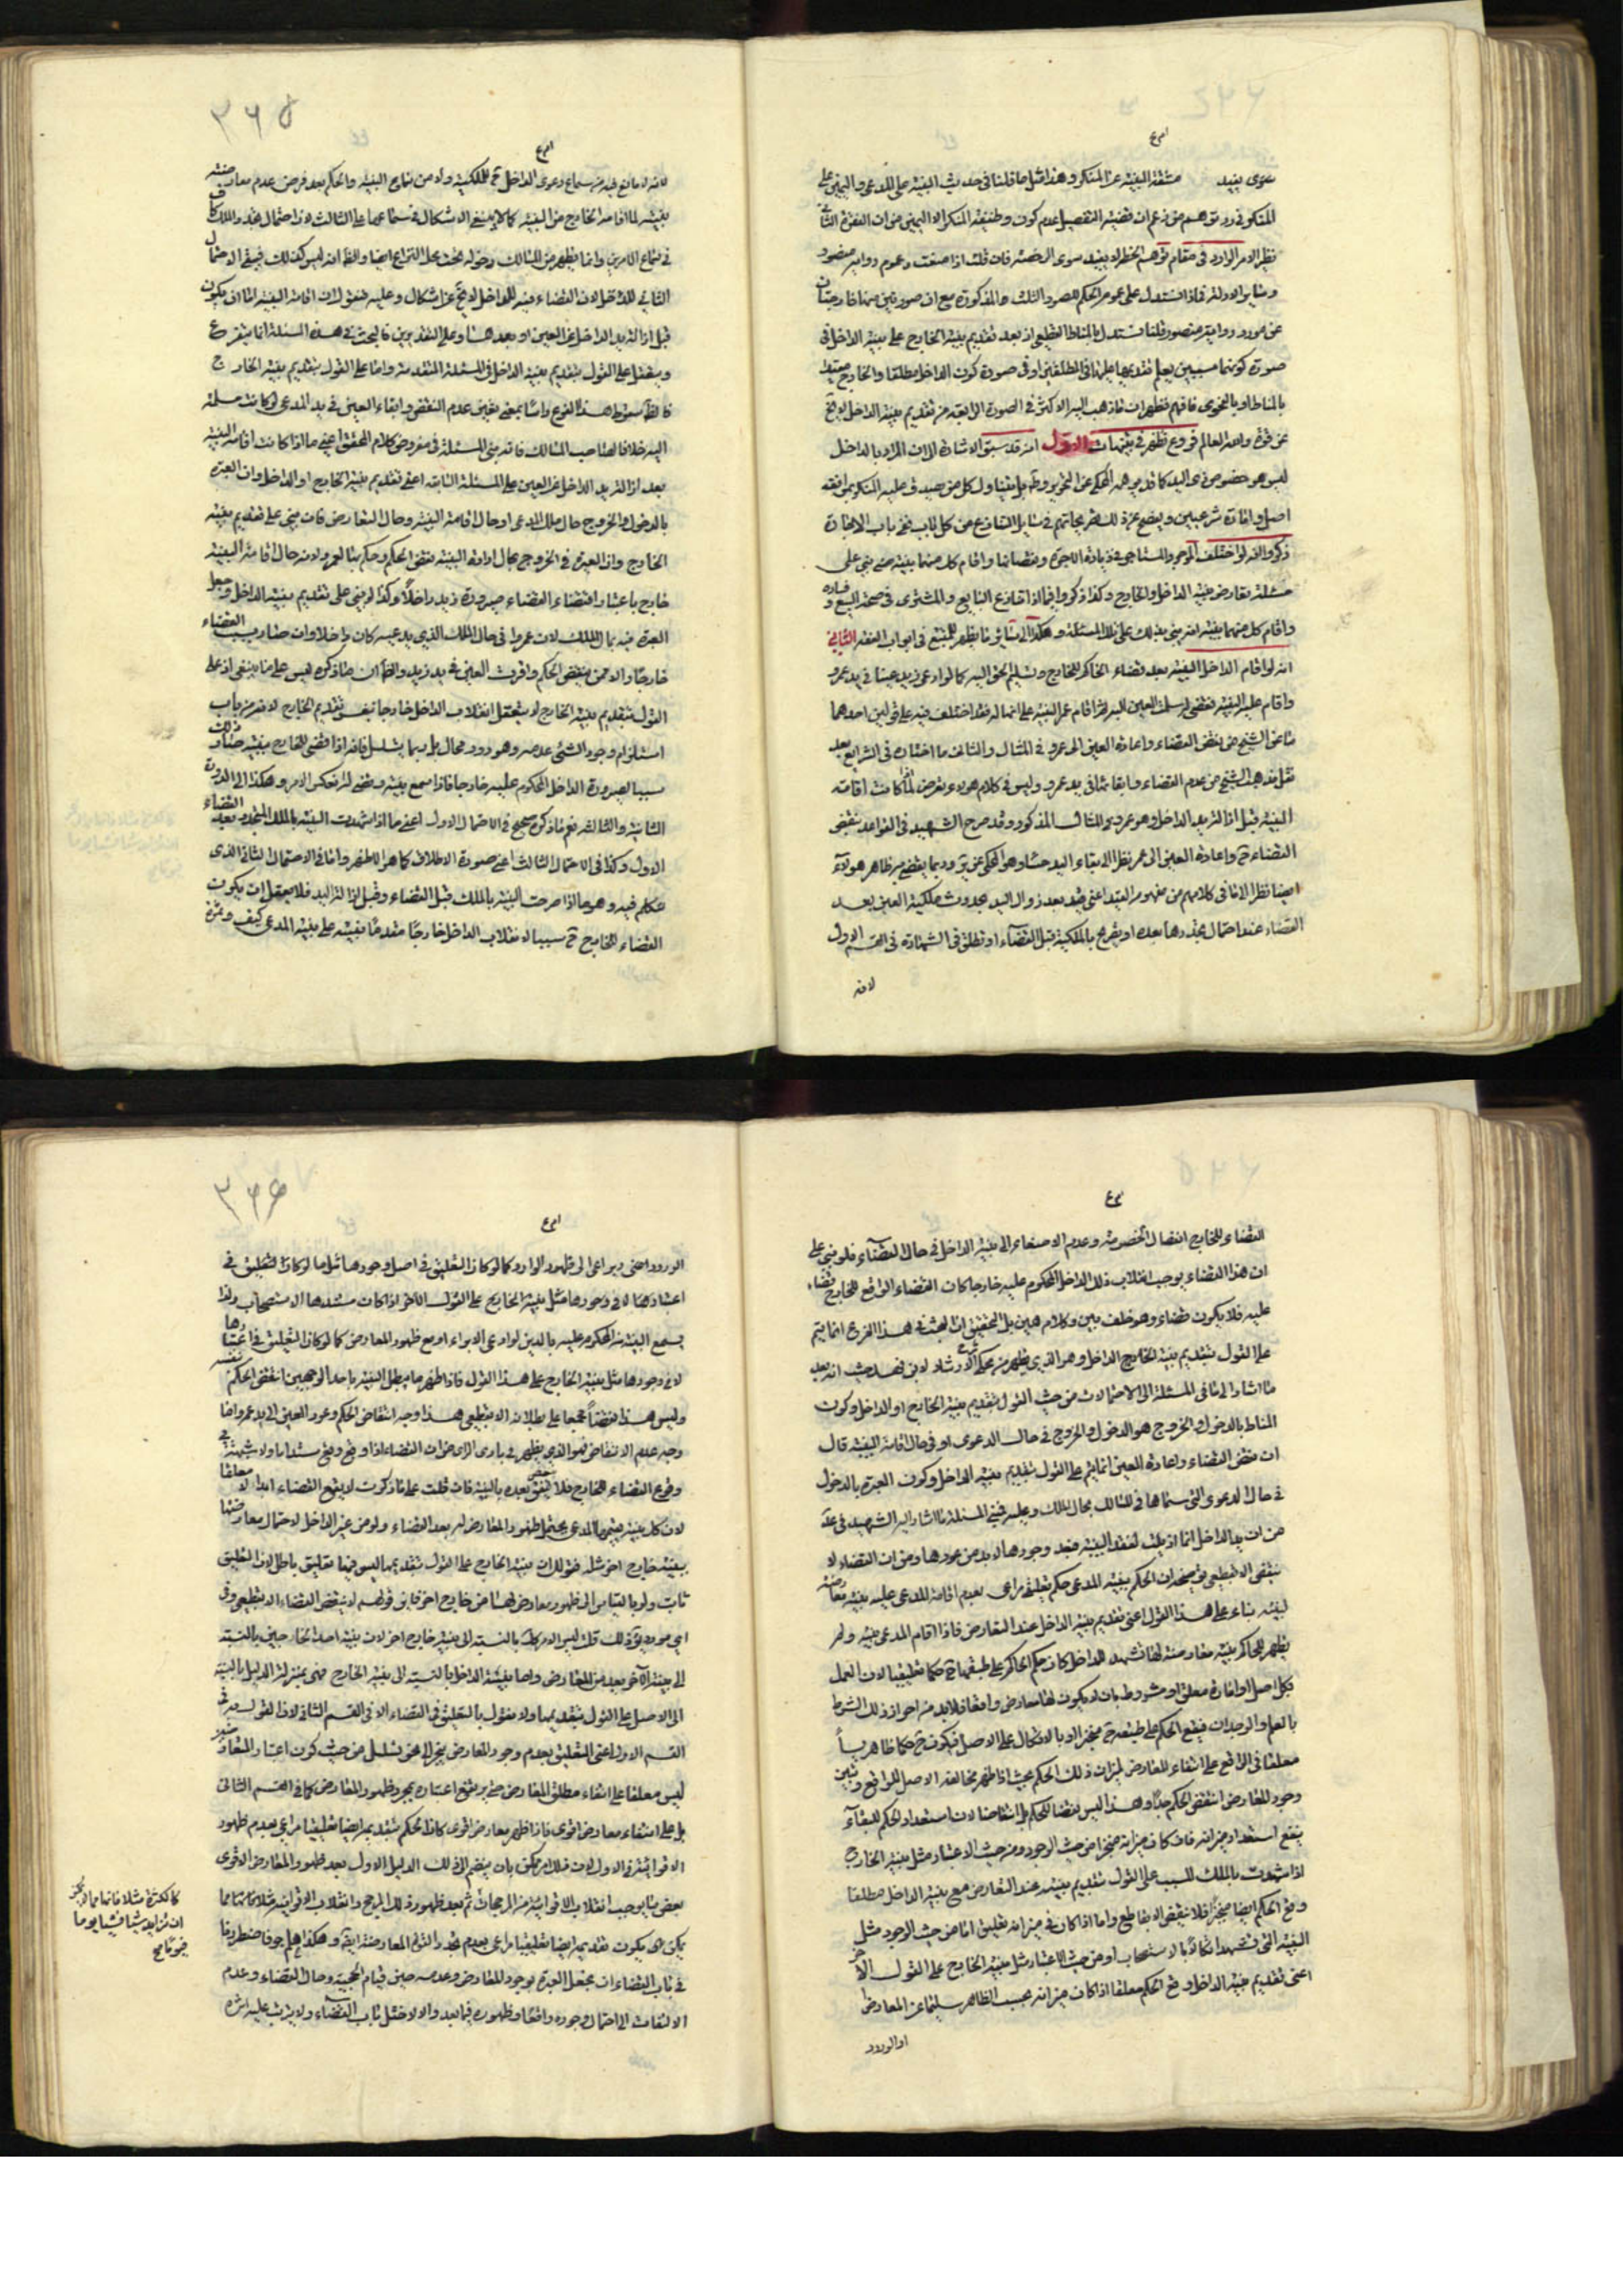 دعوى بقيد مشقة البينة عن المنكر وهذا مثل ما قلنا فى حديث البينة على المدعى واليمين على
المنكر فى رد توهم من زعم ان قضية التفصيل عدم كون وظيفة المنكر الا اليمين من ان الفقرة الثانية
نظير الامر الوارد فى مقام توهم الخطر لا يفيد سوى الرخصة فان قلت اذا ضعفت دعوى رواية منصور
وساير الادلة فماذا تستدل على عموم الحكم للصور الثلث المذكورة مع ان صورتين منها خارجتان
عن مورد رواية منصور قلنا نستدل بالمناط القطعى اذ بعد تقديم بينة الخارج على بينة الداخل فى
صورة كونهما مسببين يعلم تقديمها عليها فى المطلقين او فى صورة كون الداخل مطلقا والخارج مقيدا
بالمناط او بالفحوى فافهم فظهر ان ما ذهب اليه الاكثر فى الصورة الرابعة من تقديم بينة الداخل لا يخ
عن قوة والله العالم فروع تظهر فى تنبيهات الاول انه قد سبق الاشارة الى ان المراد بالداخل
ليس هو خصوص ذى اليد كما قد يوهمه المحكى عن التحرير وظ بل يتناول كل من يصدق عليه المنكر لموافقة
اصل او امارة شرعيين ويفصح عن ذلك تصريحاتهم فى مسايل التنازع من كل باب ففى باب الاجارة
ذكروا انه لو اختلف الموجر والمستاجر فى زيادة الاجرة ونقصانها واقام كل منهما بينة فهى مبنى على
مسئلة تعارض بينة الداخل والخارج وكذا ذكروا فيما اذا تنازع البايع والمشترى فى صحة البيع وفساده
واقام كل منهما بينة انه يبنى بذلك على تلك المسئلة وهكذا الى ساير ما يظهر للمتتبع فى ابواب الفقه الثانى
انه لو اقام الداخل البينة بعد قضاء الحاكم للخارج وتسليم الحق اليه كما لو ادعى زيد عينا فى يد عمرو
واقام عليه البينة فقضى له وسلمت العين اليه ثم اقام عمرو البينة على انها له فقد اختلف فيه على قولين احدهما
ما عن الشيخ من نقض القضاء واعادة العين الى عمرو فى المثال والثانى ما اختاره فى الشرايع بعد
نقل مذهب الشيخ من عدم القضاء وابقائها فى يد عمرو وليس فى كلام هولاء تعرض لما اذا كانت اقامة
البينة قبل ازالة يد الداخل وهو عمرو فى المثال المذكور وقد صرح الشهيد فى القواعد بنقض
القضاء ح واعادة العين الى عمر نظرا الى بقاء اليد حسا وهو المحكى عن ير وربما يفصح به ظاهر هولاء
ايضا نظرا الى ما فى كلامهم من مفهوم القيد اعنى قيد بعد زوال اليد بحدوث ملكية العين بعد
القضاء عند احتمال تجددها بعده او يصرح بالملكية قبل القضاء او تطلق فى الشهادة فى القسم الاول
لانه
٣٦٥
لانه لا مانع فيه من سماع دعوى الداخل ح للملكية ولا من سماع البينة والحكم بعد فرض عدم معارضته
بينته لما اقامه الخارج من البينة كما لا ينبغى الاشكال فى سماعها على الثالث لان احتمال تجدد الملك كاف
فى سماع الامرين وانما يظهر من المسالك دخوله تحت محل النزاع ايضا والظ انه ليس كذلك فيبقى الاحتمال
الثانى للمتحل لان القضاء فيه للداخل لا يخ عن اشكال وعليه فنقول ان اقامة البينة اما ان يكون
قبل ازالة يد الداخل عن العين او بعدها وعلى التقديرين فالبحث فى هذه المسئلة انما يتفرع
ويتعقل على القول بتقديم بينة الداخل فى المسئلة المتقدمة واما على القول بتقديم بينة الخارج
فالظ سقوط هذا الفرع راسا بمعنى تعين عدم النقض وابقاء العين فى يد المدعى لو كانت مسلمة
اليه خلافا لصاحب المسالك فانه بنى المسئلة فى مفروض كلام المحقق اعنى ما اذا كانت اقامة البينة
بعد ازالة يد الداخل عن العين على المسئلة السابقة اعنى تقديم بينة الخارج او الداخل وان العبرة
بالدخول والخروج حال ملك المدعى او حال اقامة البينة وحال التعارض فان بنى على تقديم بينة
الخارج وان العبرة فى الخروج بحال ارادة البينة نقض الحكم وحكم بها لعمرو لانه حال اقامة البينة
خارج باعتبار اقتضاء القضاء صيرورة زيد داخلا وكذا لو بنى على تقديم بينة الداخل وجعل
العبرة فيه بحال الملك لان عمروا فى حال الملك الذى يدعيه كان داخلا وان صار بسبب القضاء
خارجا والا فمن ينتقض الحكم واقرت العين فى يد زيد والظ ان ما ذكره ليس على ما ينبغى اذ على
القول بتقديم بينة الخارج لا يتعقل انقلاب الداخل خارجا بنفس تقديم الخارج لانه من باب
استلزام وجود الشئ عدمه وهو دور محال بل ربما يتسلسل فانه اذا قضى للخارج ببينة صار ذلك
سببا لصيرورة الداخل المحكوم عليه خارجا فاذا سمع بينته وقضى له انعكس الامر وهكذا الى المرتبة
الثانية والثالثة نعم ما ذكره صحيح فى الاحتمال الاول اعنى ما اذا شهدت البينة بالملك المتجدد بعد القضاء
الاول وكذا فى الاحتمال الثالث اعنى صورة الاطلاق كما هو الاظهر واما فى الاحتمال الثانى الذى
نتكلم فيه وهو ما اذا صرحت البينة بالملك قبل القضاء وقبل ازالة اليد فلا يعقل ان يكون
القضاء للخارج ح سببا لانقلاب الداخل خارجا مقدما بينته على بينة المدعى كيف وثمرة
القضاء للخارج انفصال الخصومة وعدم الاصغاء الى بينة الداخل فى حال القضاء فلو بنى على
ان هذا القضاء يوجب انقلاب ذلك الداخل المحكوم عليه خارجا كان القضاء الواقع للخارج قضاء
عليه فلا يكون قضاء وهو خلف بين وكلام هين بل التحقيق ان البحث فى هذا الفرع انما يتم
على القول بتقديم بينة الخارج الداخل وهو الذى يظهر من محكى الارشاد لابن فهد حيث انه بعد
ما اشار الى ما فى المسئلة الى الاحتمالات من حيث القول بتقديم بينة الخارج او الداخل وكون
المناط بالدخول والخروج هو الدخول والخروج فى حال الدعوى او فى حال اقامة البينة قال
ان نقض القضاء واعادة العين انما يتم على القول بتقديم بينة الداخل وكون العبرة بالدخول
فى حال الدعوى التى سماها فى المسالك بحال الملك وعليه فبنى المسئلة ما اشار اليه الشهيد فى عد
من ان يد الداخل انما ازيلت لفقد البينة فبعد وجودها لابد من عودها ومن ان القضاء لا
ينقض الا بقطعى توضيحه ان الحكم ببينة المدعى حكم تعليقى مراعى بعدم اقامة المدعى عليه بينة معارضة
لبينته بناء على هذا القول اعنى تقديم بينة الداخل عند التعارض فاذا اقام المدعى بينة ولم
يظهر للحاكم بينة معارضة لها تشهد للداخل كان حكم الحاكم على طبقها ح حكما تعليقيا لان العمل
بكل اصل او امارة معلق او مشروط بان لا يكون لها معارض واقعا فلابد من احراز ذلك الشرط
بالعلم والوجدان فيقع الحكم على طبقه ح منجزا او بالاتكال على الاصل فيكون ح حكما ظاهريا
معلقا فى الواقع على انتفاء المعارض لميزان ذلك الحكم بحيث اذا ظهر مخالفة الاصل للواقع وتبين
وجود المعارض انتقض الحكم جدا وهذا ليس نقضا للحكم بل انتقاضا لان استعداد الحكم للبقاء
يتبع استعداد ميزانه فان كان ميزانه منجزا من حيث الوجود ومن حيث الاعتبار مثل بينة الخارج
اذا شهدت بالملك المسبب على القول بتقديم بينته عند التعارض مع بينة الداخل مطلقا
وقع الحكم ايضا منجزا فلا ينتقض الا بقاطع واما اذا كان فى ميزانه تعليق اما من حيث الوجود مثل
البينة التى تشهد اتكالا بالاستصحاب او من حيث الاعتبار مثل بينة الخارج على القول الاخر
اعنى تقديم بينة الداخل وقع الحكم معلقا اذا كان ميزانه بحسب الظاهر سليما عن المعارض
او الورود
٣٦٦
الورود احنى ديراعى الى ظهور الوارد كما لو كان التعليق فى اصل وجودها مثل ما لو كان التعليق فى
اعتبارها لا فى وجودها مثل بينة الخارج على القول الاخر اذا كان مستندها الاستصحاب ولذا
يسمع البينة من المحكوم عليه بالدين لو ادعى الابراء او مع ظهور المعارض كما لو كان التعليق فى اعتبارها
لا فى وجودها مثل بينة الخارج على هذا القول فاذا ظهر ما يبطل البينة باحد الوجهين انتقض الحكم بنفسه
وليس هذا نقضا مجمعا على بطلانه الا بقطعى هذا وجه انتقاض الحكم وعود العين الى يد عمرو واما
وجه عدم الانتقاض فهو الذى يظهر فى بادى الراى من ان القضاء اذا وقع وقع مستداما ولا شبهة فى
وقوع القضاء للخارج فلا ينقض بعده بالبينة فان قلت على ما ذكرت لا يقع القضاء ابدا الا معلقا
لان كل بينة يقيمها المدعى يحتمل ظهور المعارض له بعد القضاء ولو من غير الداخل لاحتمال معارضتها
ببينة خارج اخر مثله فقولك ان بينة الخارج على القول بتقديمها ليس فيها تعليق باطل لان التعليق
ثابت ولو بالقياس الى ظهور معارض لها من خارج اخر فاين قولهم لا ينقض القضاء الا بقطعى وفى
اى مورد يؤخذ لك قلت ليس الامر كك بالنسبة الى بينة خارج اخر لان بينة احد الخارجين بالنسبة
الى بينة الآخر يعد من المعارض واما بينة الداخل بالنسبة الى بينة الخارج فهى بمنزلة الدليل بالنسبة
الى الاصل على القول بتقديمها ولا نقول بالتعليق فى القضاء الا فى القسم الثانى لان القول به فى
القسم الاول اعنى التعليق بعدم وجود المعارض ينجر الى نحو تسلسل من حيث كون اعتبار المعارض
ليس معلقا على انتفاء مطلق المعارض حتى يرتفع اعتباره بمجرد ظهور المعارض كما فى القسم الثانى
بل على انتفاء معارض اقوى فاذا ظهر معارض اقوى كان الحكم بتقديمه ايضا تعليقيا مراعى بعدم ظهور
الاقوائية فى الاول لان ذلك امر ممكن بان ينضم الى ذلك الدليل الاول بعد ظهور المعارض الاقوى
بعض ما يوجب انقلاب الاقوائية من المرجحات ثم بعد ظهور ذلك المرجح وانقلاب الاقوائية مثلا
يمكن ان يكون تقديمه ايضا تعليقيا مراعى بعدم تجدد القوة المعارضة ايضا وهكذا هلم جرا
فى باب القضاء ان يجعل العبرة بوجود المعارض وعدمه حين قيام الحجية وحال القضاء وعدم
الالتفات الى احتمال وجوده واقعا وظهوره فيما بعد والا لاختل باب القضاء ولا يترتب عليه اثره
كالكثرة مثلا فانها مما يمكن
ان تزايد شيئا فشيئا يوما
فيوما